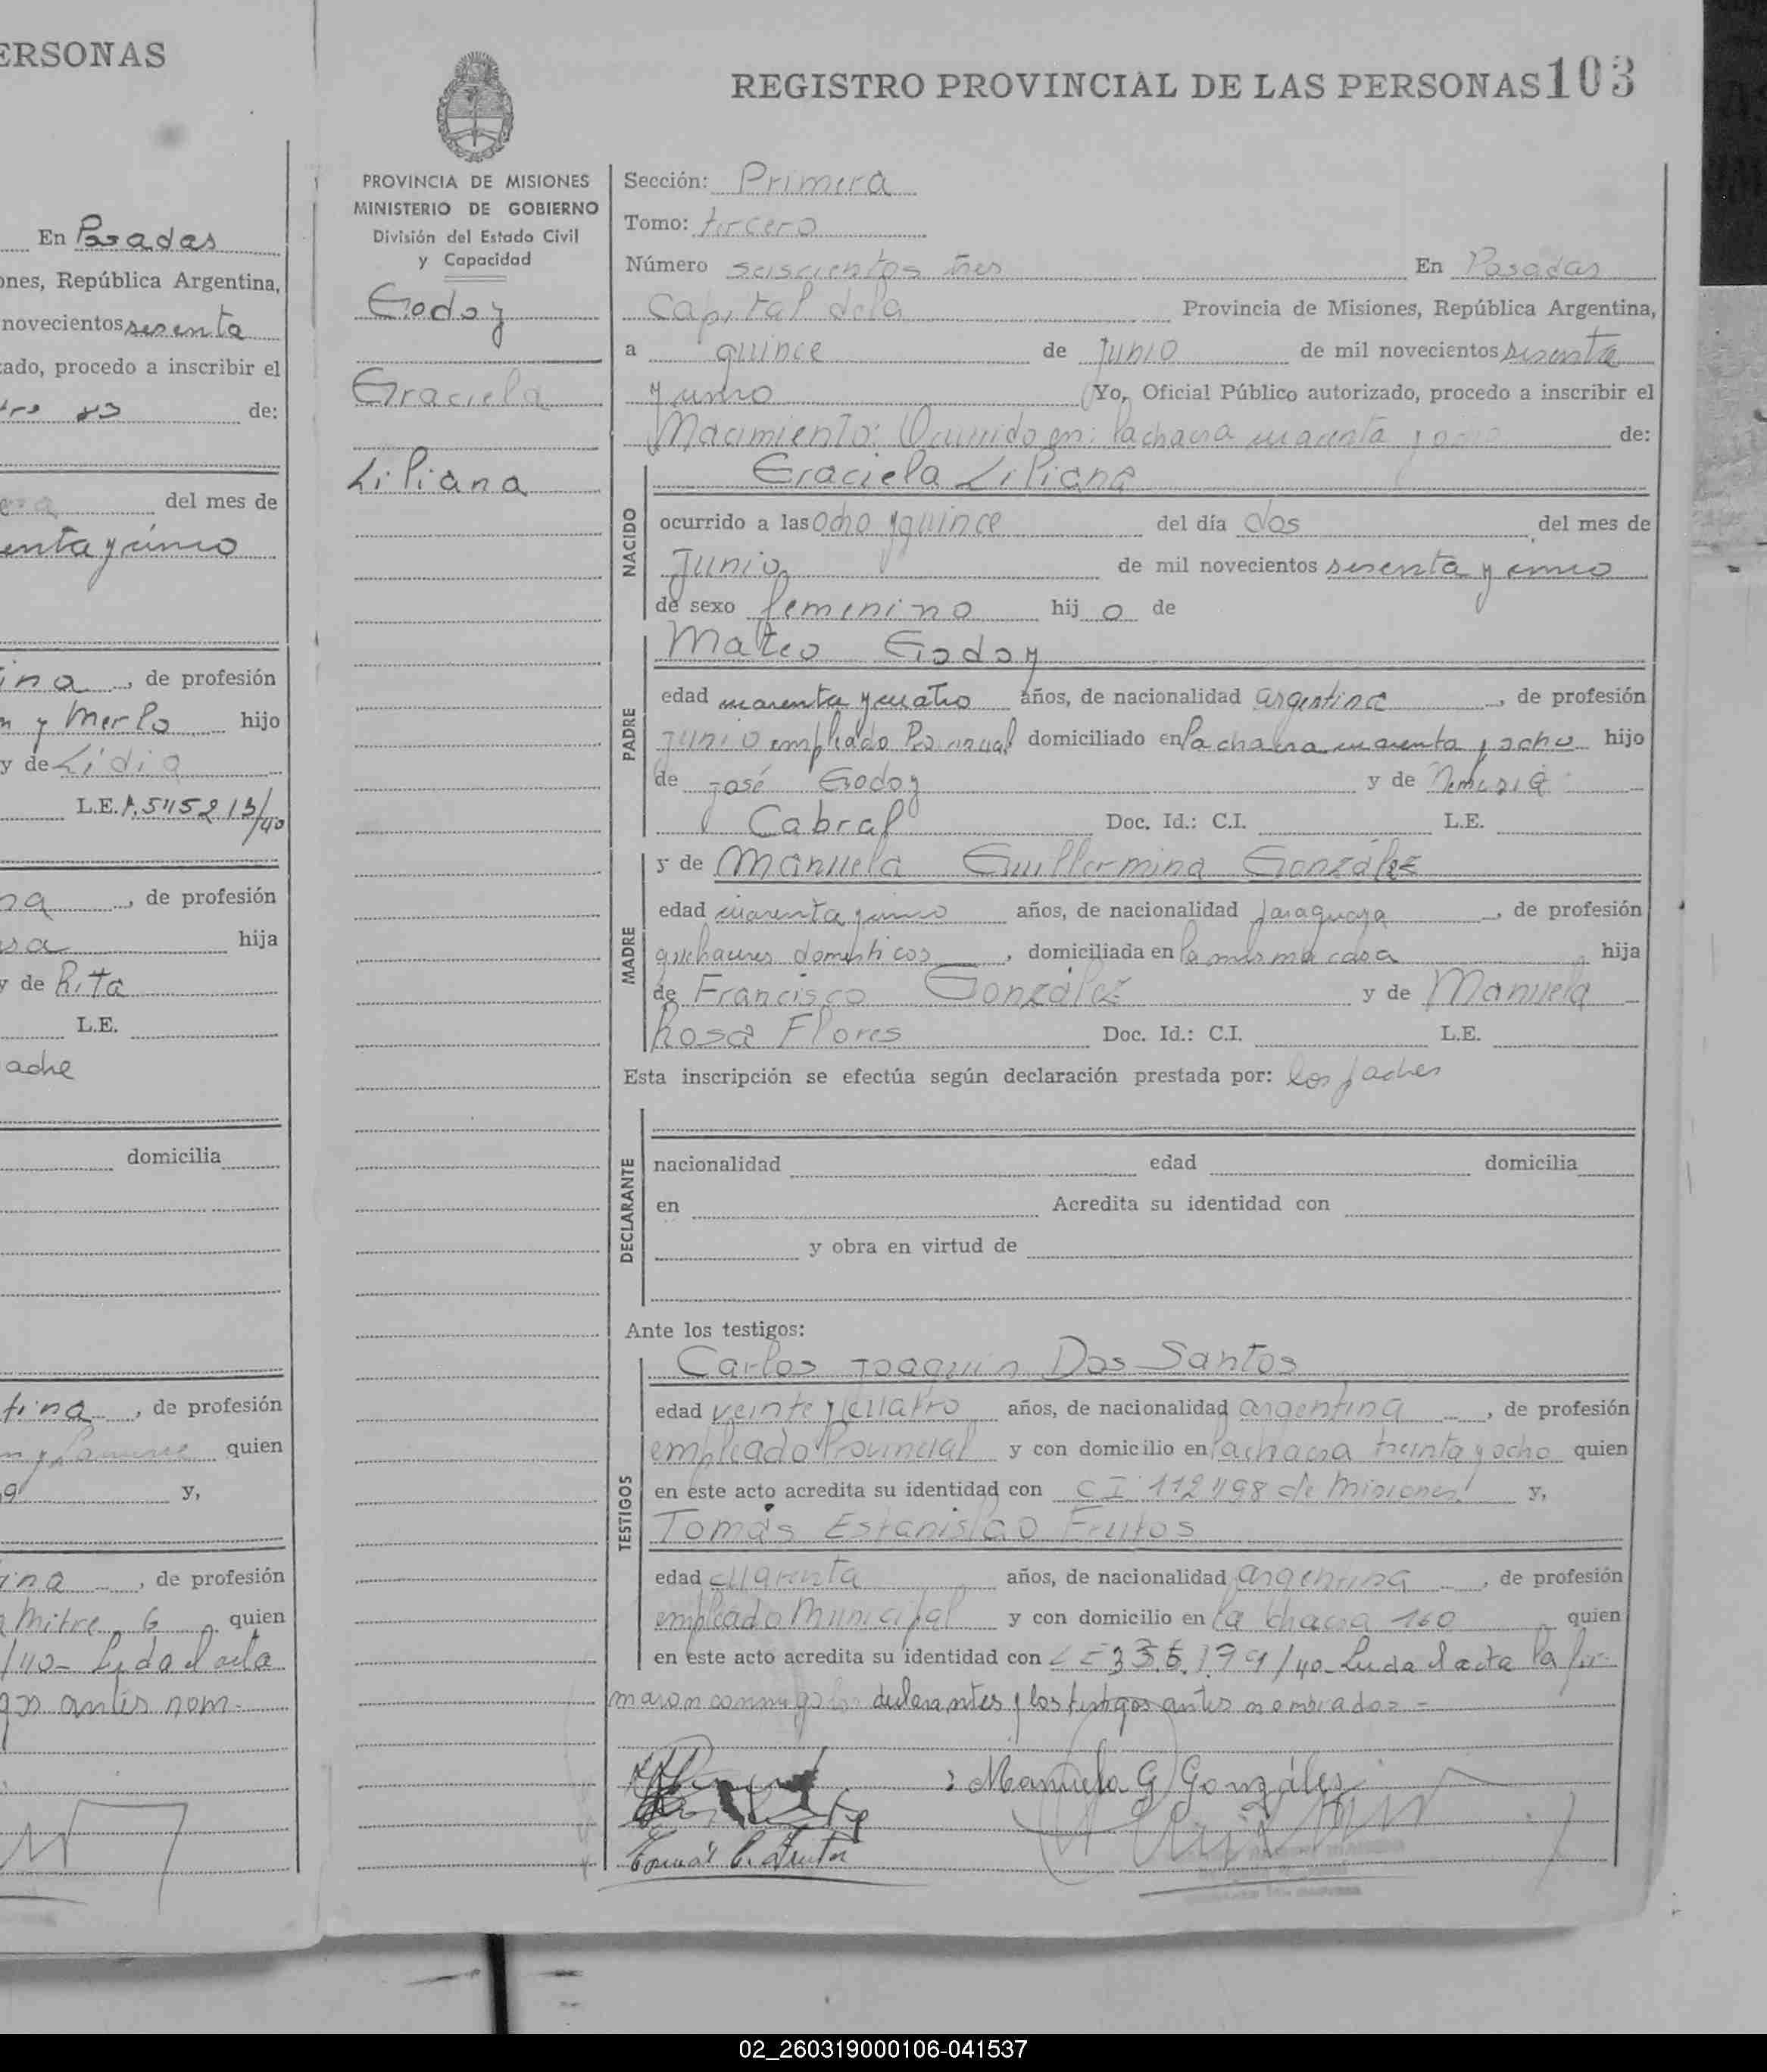 ERSONAS
En Posadas
ones, República Argentina,
novecientos sesenta
tado, procedo a inscribir el
83 de:
del mes de
enta y cinco
ina, de profesión
n y Merlo hijo
y de Lidia
L.E. 1.545213/40
na, de profesión
sa hija
y de Rita
L.E.
adre
domicilia
tina, de profesión
quien
y,
ina, de profesión
Mitre 6 quien
/40- Leida el acta
gos antes nom-
REGISTRO PROVINCIAL DE LAS PERSONAS 103
PROVINCIA DE MISIONES
MINISTERIO DE GOBIERNO
División del Estado Civil
y Capacidad
Godoy
Graciela
Liliana
Sección: Primera
Tomo: tercero
Número seiscientos tres En Posadas
Capital de la Provincia de Misiones, República Argentina,
a quince de Junio de mil novecientos sesenta
y cinco Yo, Oficial Público autorizado, procedo a inscribir el
Nacimiento: Ocurrido en: la chacra cuarenta y ocho de:
NACIDO
Graciela Liliana
ocurrido a las ocho y quince del día dos del mes de
Junio de mil novecientos sesenta y cinco
de sexo femenino hij o de
PADRE
Mateo Godoy
edad cuarenta y cuatro años, de nacionalidad argentina, de profesión
Junio empleado Provincial domiciliado en la chacra cuarenta y ocho hijo
de José Godoy y de Nemesia
Cabral Doc. Id.: C.I. L.E.
MADRE
y de Manuela Guillermina González
edad cuarenta y cinco años, de nacionalidad paraguaya, de profesión
quehaceres domesticos, domiciliada en la misma casa hija
de Francisco González y de Manuela
Rosa Flores Doc. Id.: C.I. L.E.
Esta inscripción se efectúa según declaración prestada por: los padres
DECLARANTE
nacionalidad edad domicilia
en Acredita su identidad con
y obra en virtud de
Ante los testigos:
TESTIGOS
Carlos Joaquin Dos Santos
edad veinte y cuatro años, de nacionalidad argentina, de profesión
empleado Provincial y con domicilio en la chacra treinta y ocho quien
en este acto acredita su identidad con C I 112498 de Misiones y,
Tomás Estanislao Frutos
edad cuarenta años, de nacionalidad argentina, de profesión
empleado Municipal y con domicilio en la chacra 160 quien
en este acto acredita su identidad con L E 335.179/40- Leida el acta la fir-
maron conmigo los declarantes y los testigos antes nombrados=-
Manuela G González
Tomás E. Frutos
02_260319000106-041537